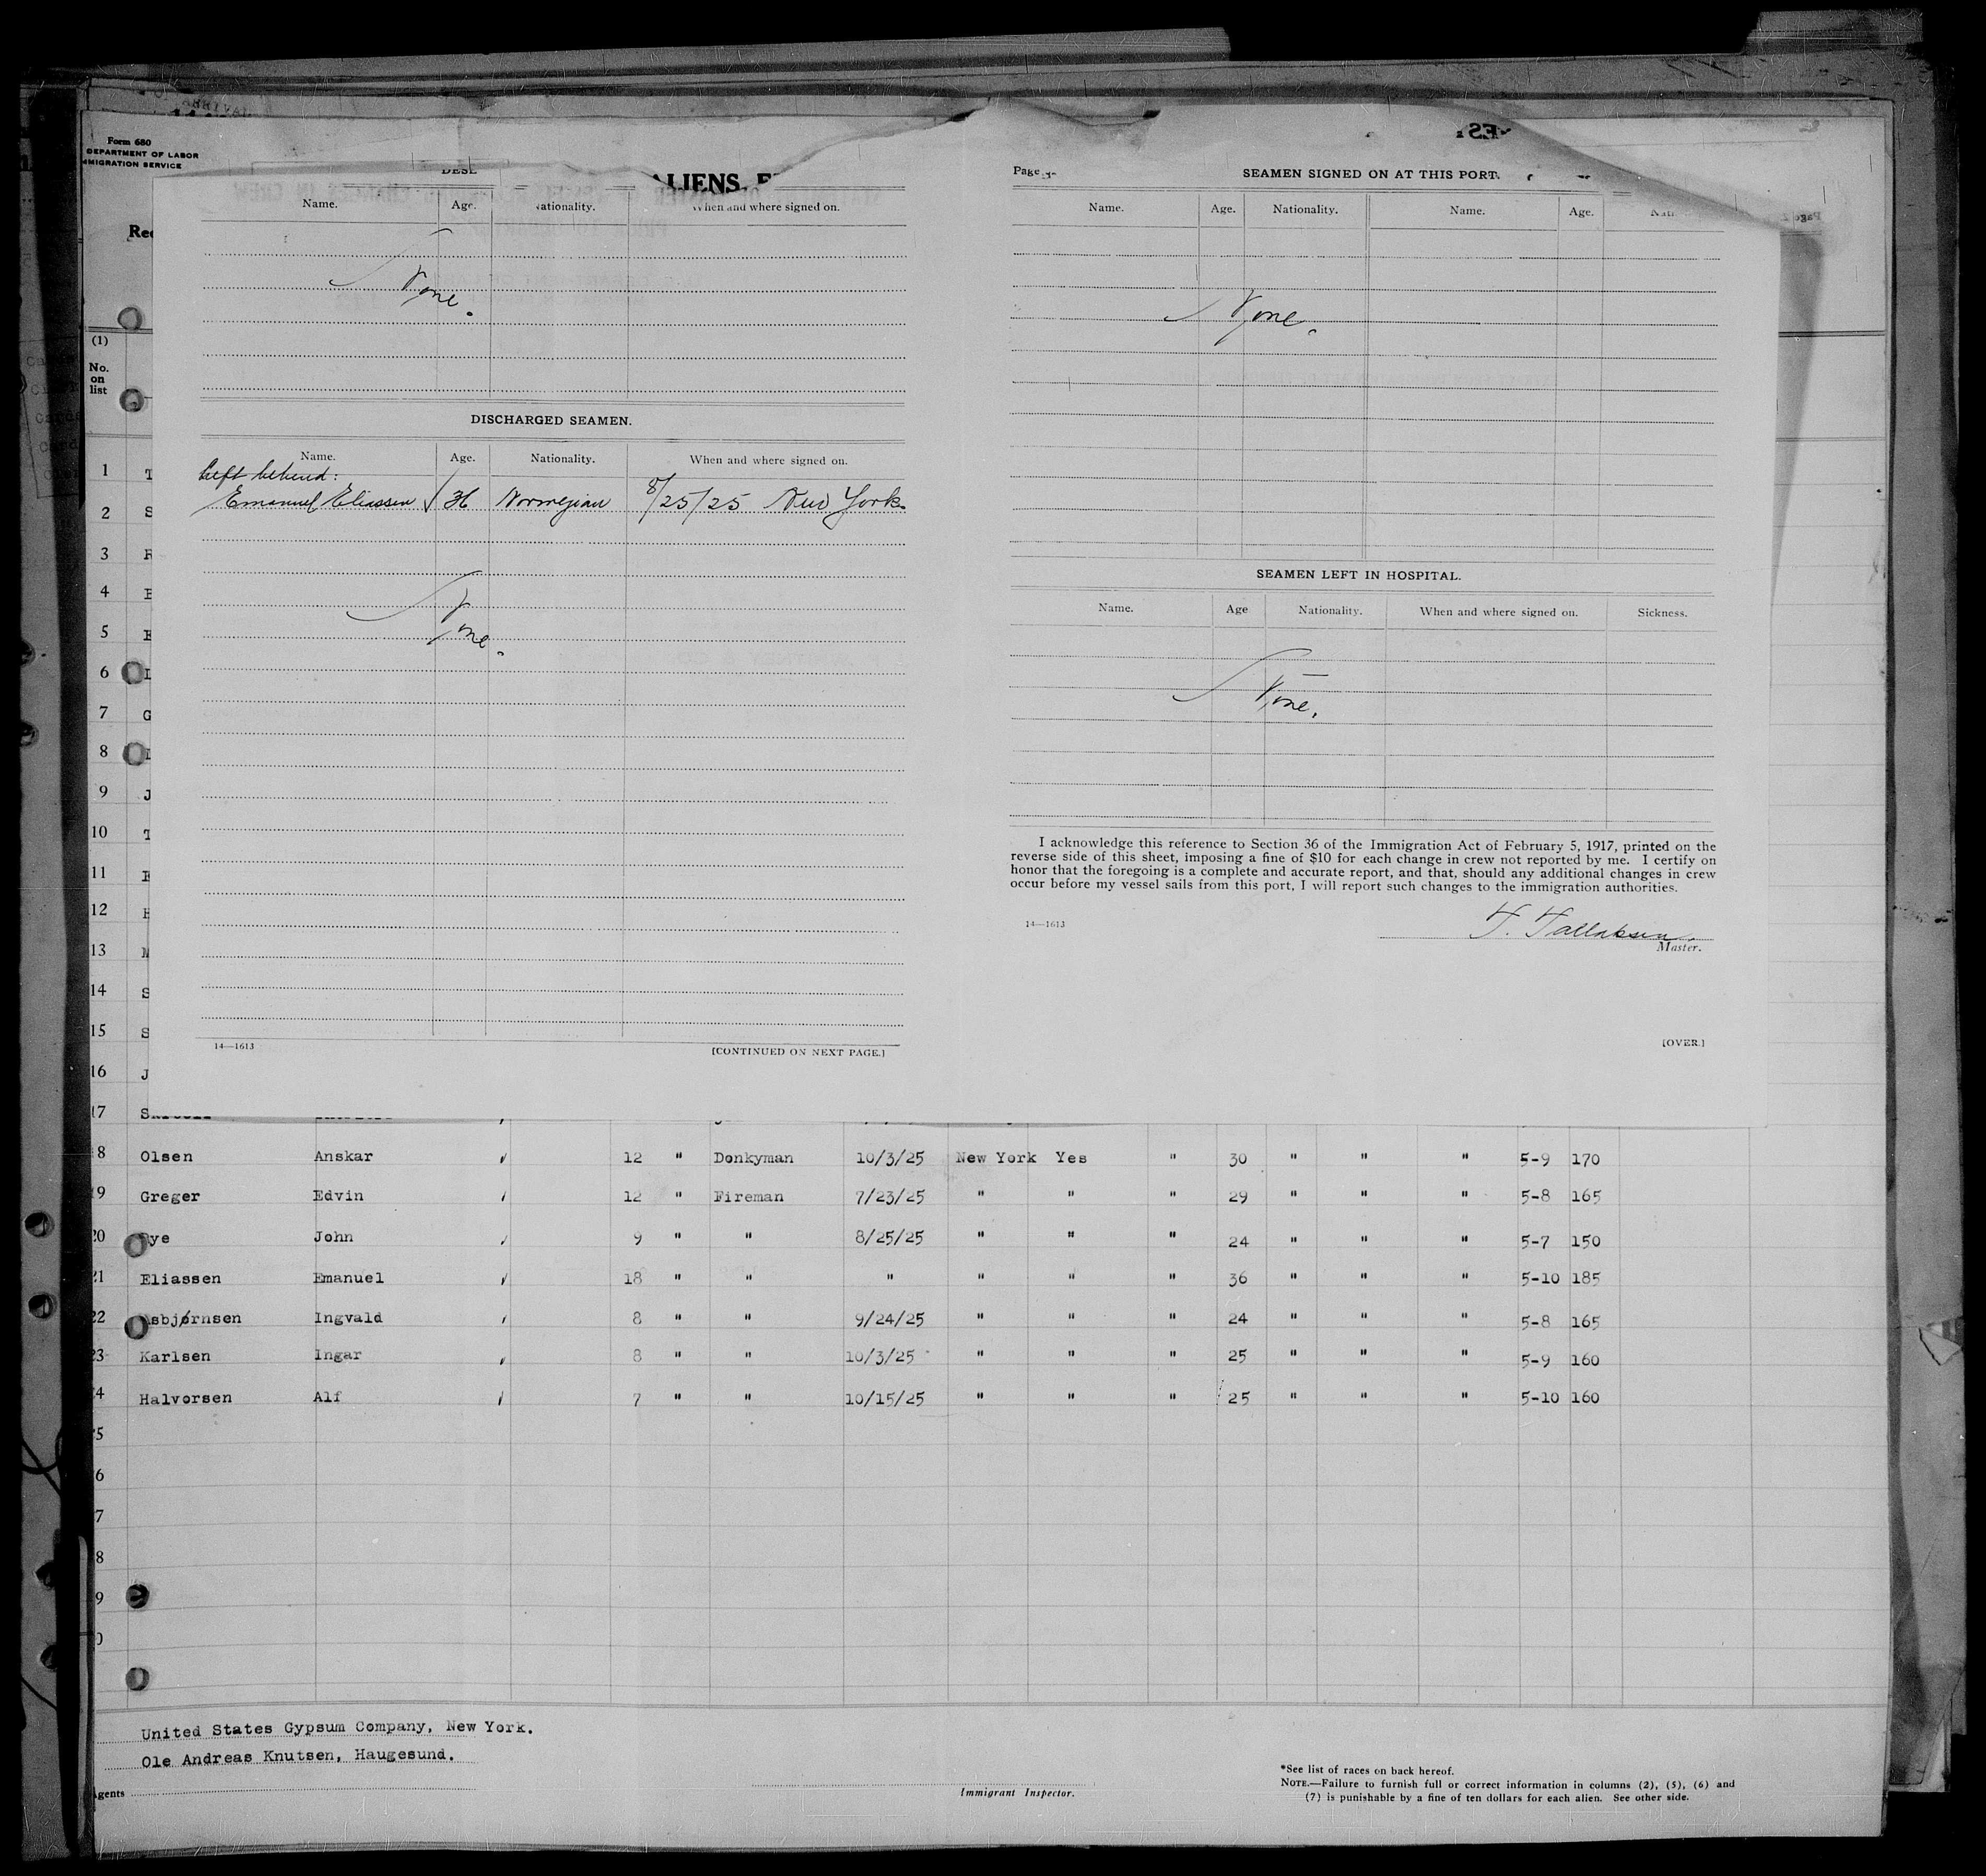 ARRIVAL
Form 680
DEPARTMENT OF LABOR
IMMIGRATION SERVICE
ALIENS
Name. Age. Nationality. When and where signed on.
None.
DISCHARGED SEAMEN.
Name. Age. Nationality. When and where signed on.
Left behind:
Emanuel Eliassen √ 36 Norwegian 8/25/25 New York.
None.
14—1613 [CONTINUED ON NEXT PAGE.]
Page
SEAMEN SIGNED ON AT THIS PORT.
Name. Age. Nationality. Name. Age.
None.
SEAMEN LEFT IN HOSPITAL.
Name. Age Nationality. When and where signed on. Sickness.
None.
I acknowledge this reference to Section 36 of the Immigration Act of February 5, 1917, printed on the
reverse side of this sheet, imposing a fine of $10 for each change in crew not reported by me. I certify on
honor that the foregoing is a complete and accurate report, and that, should any additional changes in crew
occur before my vessel sails from this port, I will report such changes to the immigration authorities.
14—1613
T. Tallaksen
Master.
[OVER.]
(1)
No.
on
list
1 T
2 S
3
4
5
6 L
7 G
8
9 J
10 T
11
12
13 M
14 S
15 S
16 J
17
8 Olsen Anskar 12 " Donkyman 10/3/25 New York Yes " 30 " " " 5-9 170
9 Greger Edvin 12 " Fireman 7/23/25 " " " 29 " " " 5-8 165
20 ye John 9 " " 8/25/25 " " " 24 " " " 5-7 150
21 Eliassen Emanuel 18 " " " " " " 36 " " " 5-10 185
22 sbjørnsen Ingvald 8 " " 9/24/25 " " " 24 " " " 5-8 165
23 Karlsen Ingar 8 " " 10/3/25 " " " 25 " " " 5-9 160
4 Halvorsen Alf 7 " " 10/15/25 " " " 25 " " " 5-10 160
5
6
7
8
9
0
United States Gypsum Company, New York.
Ole Andreas Knutsen, Haugesund.
Agents
Immigrant Inspector.
*See list of races on back hereof.
NOTE.—Failure to furnish full or correct information in columns (2), (5), (6) and
(7) is punishable by a fine of ten dollars for each alien. See other side.